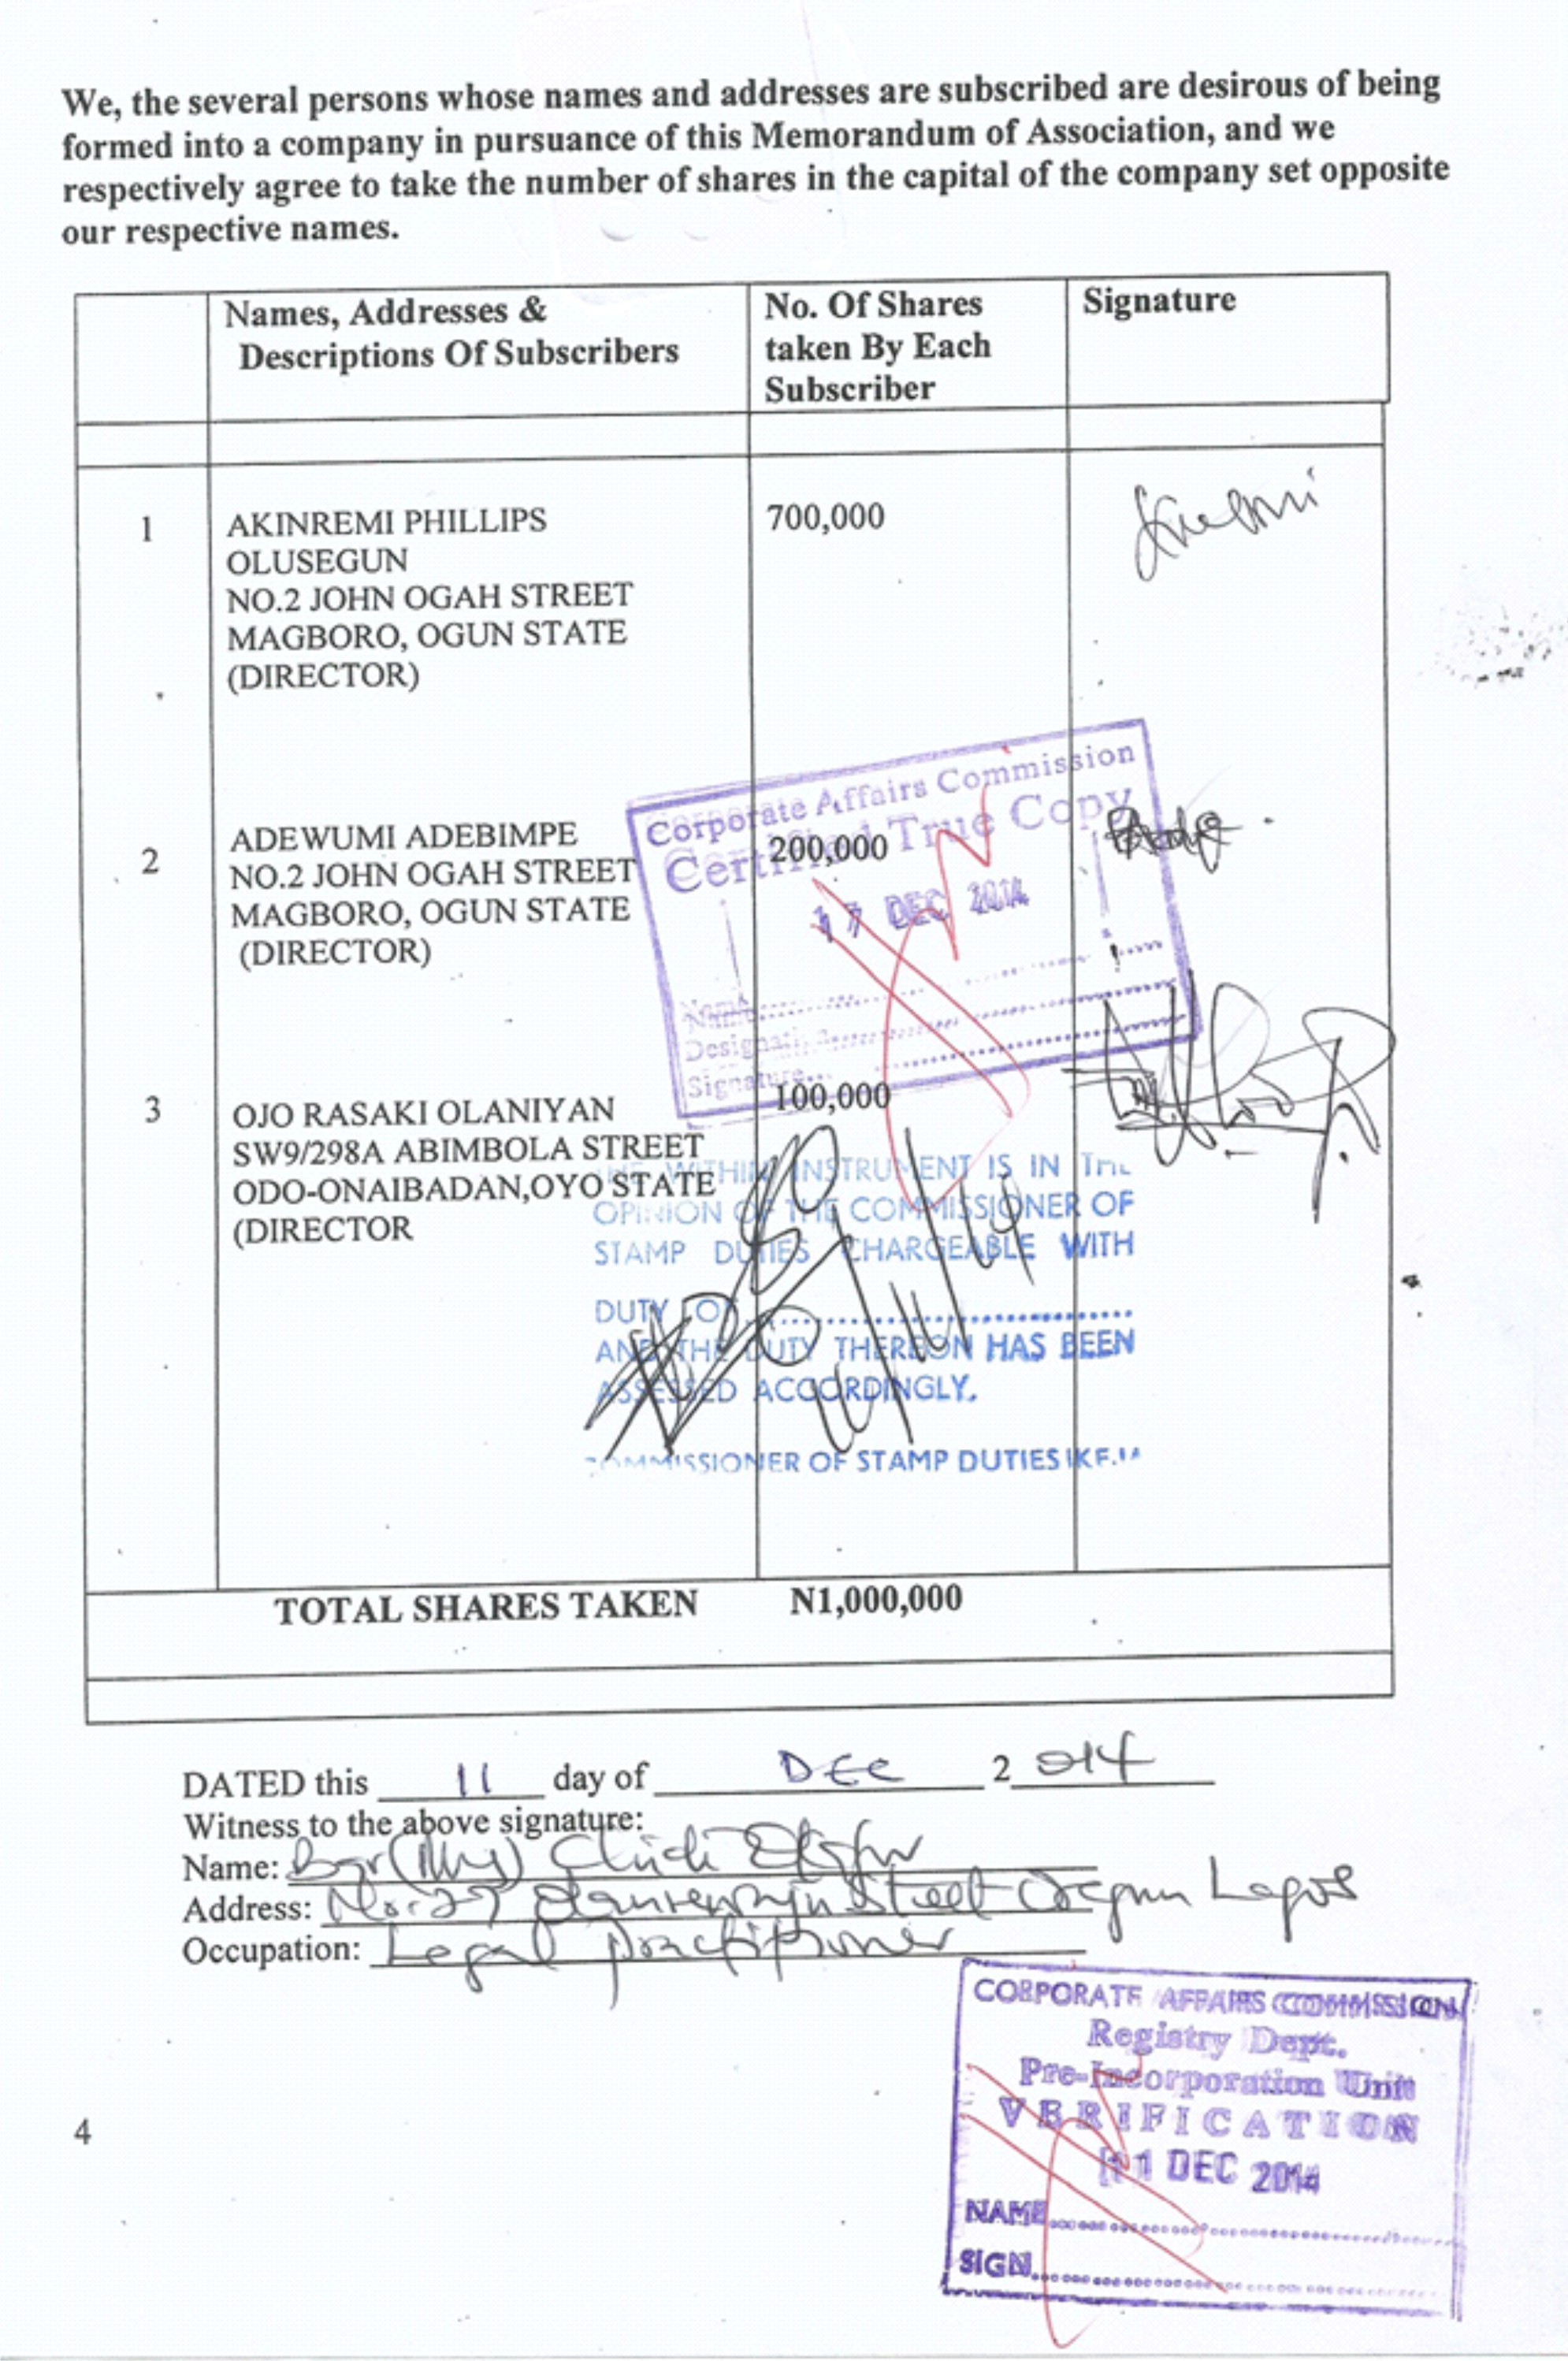 We, the several persons whose names and addresses are subscribed are desirous of being
formed into a company in pursuance of this Memorandum of Association, and we
respectively agree to take the number of shares in the capital of the company set opposite
our respective names.
Names, Addresses &
Descriptions Of Subscribers
No. Of Shares
taken By Each
Subscriber
Signature
1
AKINREMI PHILLIPS
OLUSEGUN
NO.2 JOHN OGAH STREET
MAGBORO, OGUN STATE
(DIRECTOR)
700,000
2
ADEWUMI ADEBIMPE
NO.2 JOHN OGAH STREET
MAGBORO, OGUN STATE
(DIRECTOR)
200,000
Corporate Affairs Commission
Certified True Copy
17 DEC 2014
Name
Designati
Signature
3
OJO RASAKI OLANIYAN
SW9/298A ABIMBOLA STREET
ODO-ONAIBADAN,OYO STATE
(DIRECTOR
100,000
THE WITHIN INSTRUMENT IS IN THE
OPINION OF THE COMMISSIONER OF
STAMP DUTIES CHARGEABLE WITH
DUTY OF
AND THE DUTY THEREON HAS BEEN
ASSESSED ACCORDINGLY.
COMMISSIONER OF STAMP DUTIES IKEJA
TOTAL SHARES TAKEN N1,000,000
DATED this 11 day of DEC 2014
Witness to the above signature:
Name: Bar (Mrs) Chidi
Address: No. 27 Street Lagos
Occupation: Legal Practitioner
CORPORATE AFFAIRS COMMISSION
Registry Dept.
Pre-Incorporation Unit
VERIFICATION
11 DEC 2014
NAME
SIGN
4